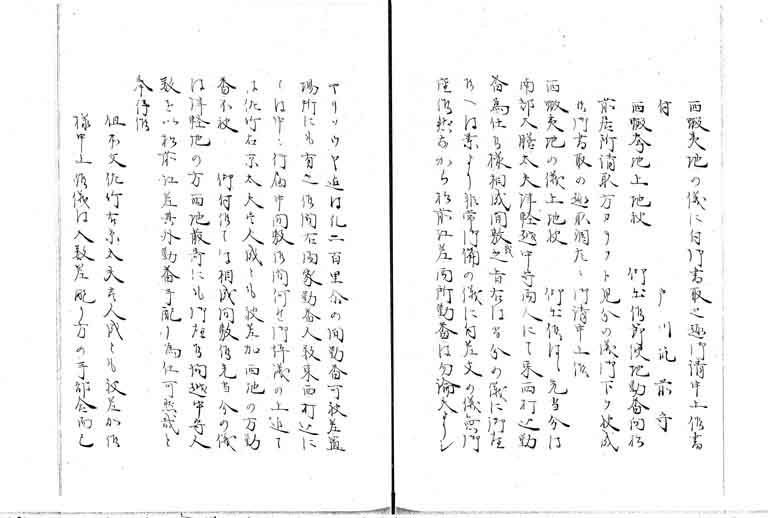 西蝦夷地の儀に付御書取之趣御請申上候書
付　　　　　戸川筑前守
西蝦夷地上地被　仰出候節使地勤番向松
前居所請取方カラフト見分の儀御下ケ被成
候御書取の趣取調左ニ御請申上候
西蝦夷地の儀上地被　仰出候ハ丶先当分は
南部大膳大夫津軽越中守両人にて東西打込勤
番為仕候様相成間敷哉之旨右は当分の儀に御座
候へは兼より非常御備の儀に付差支の儀無御
座候然しなから松前江差両所勤番は勿論大よりシ
ヤリソウヤ迄は凡二百里余の間勤番可被差置
場所にも有之候間右両家勤番人数東西打込に
ては中々行届申間敷候間何れ御評議の上追て
は佐竹右京大夫壱人成とも被差加西地の方勤
番不被　仰付候ては相成間敷候先当分の儀
は津軽地の方西地最寄にも御座候間越中守人
数を以松前江差其外勤番手配り為仕可然哉と
奉存候
但本文佐竹右京大夫壱人成とも被差加候
様申上候儀は人数差配り方の手都合而已